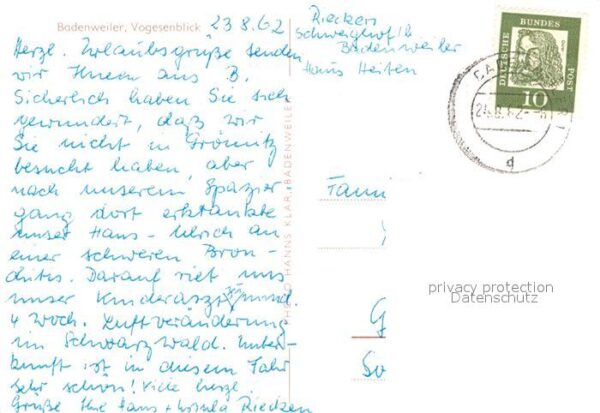 Badenweiler, Vogesenblick
23 8. 62
Riecken
Schweighof 16
Badenweiler
Haus Heiten
Herzl. Urlaubsgrüße senden
wir Ihnen aus B.
Sicherlich haben Sie sich
gewundert, daß wir
Sie nicht in Grömitz
besucht haben, aber
nach unserem Spazier
gang dort erkrankte
unser Hans-Ulrich an
einer schweren Bron-
chitis. Darauf riet uns
unser Kinderarzt zu mind.
4 Woch. Luftveränderung
im Schwarzwald. Unter-
kunft ist in diesem Jahr
sehr schön! Viele herzl.
Grüße Ihre Hans + Ursula Riecken
PHOTO HANNS KLAR, BADENWEILER
DEUTSCHE BUNDESPOST
10
d
Fami
G
So
privacy protection
Datenschutz